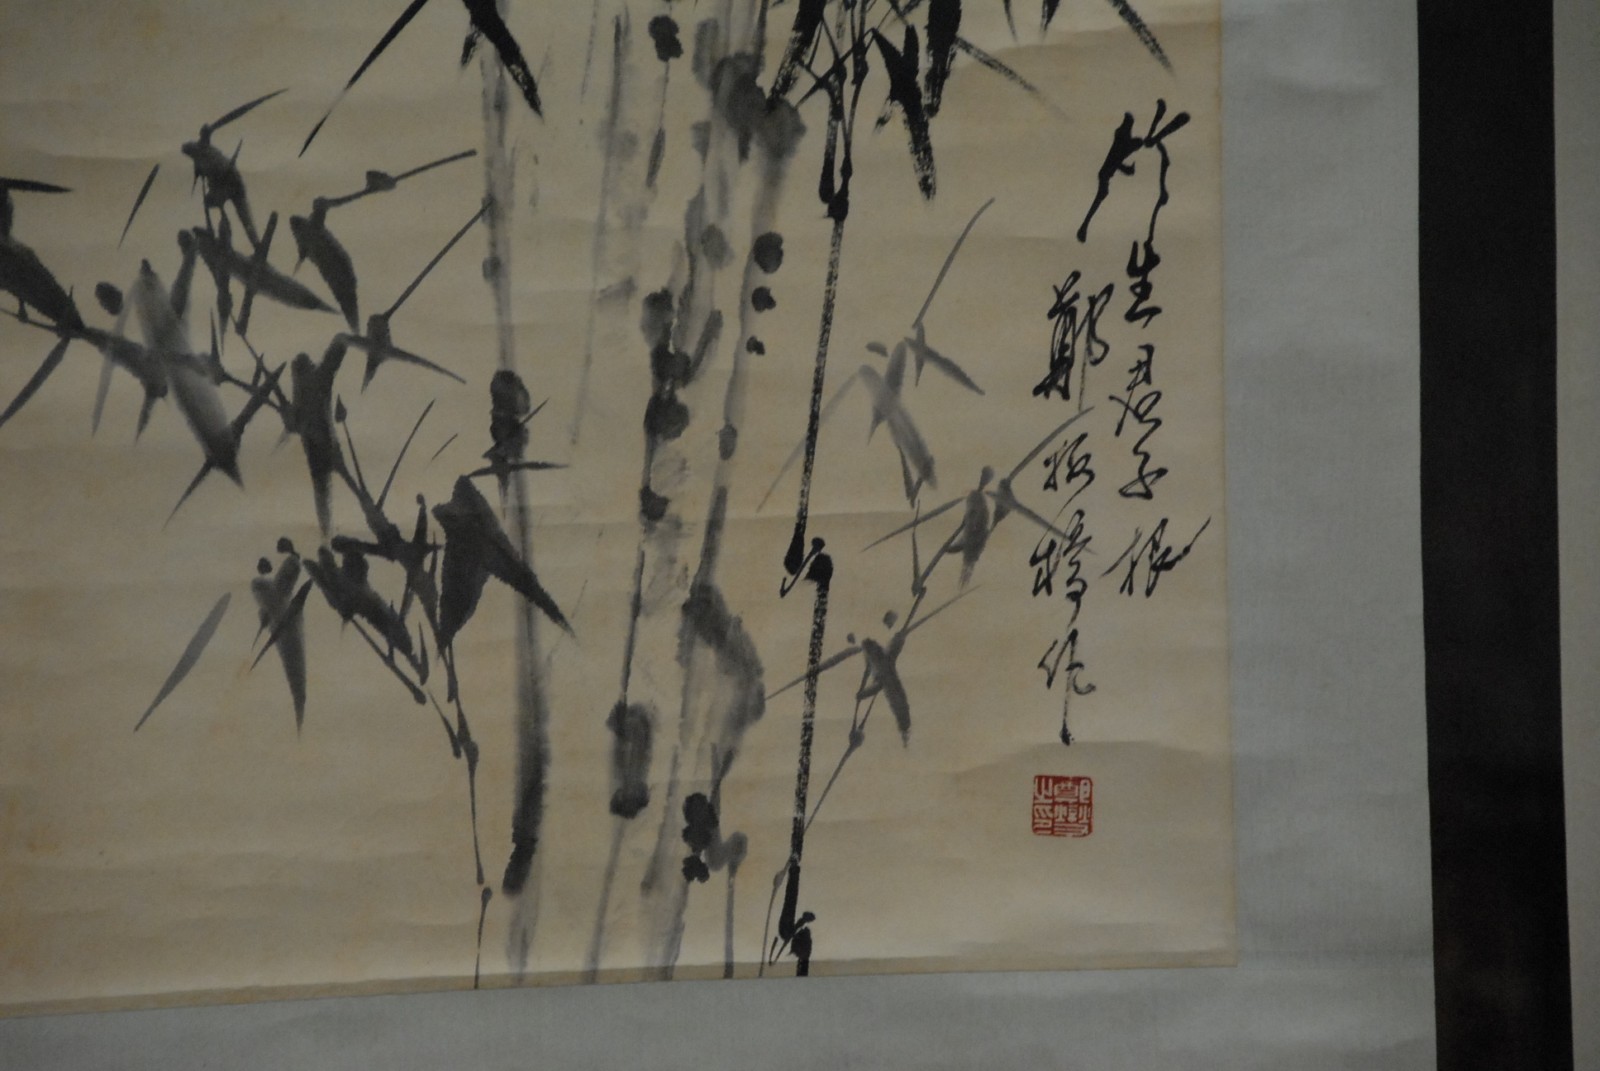 竹生君子根
鄭板橋作